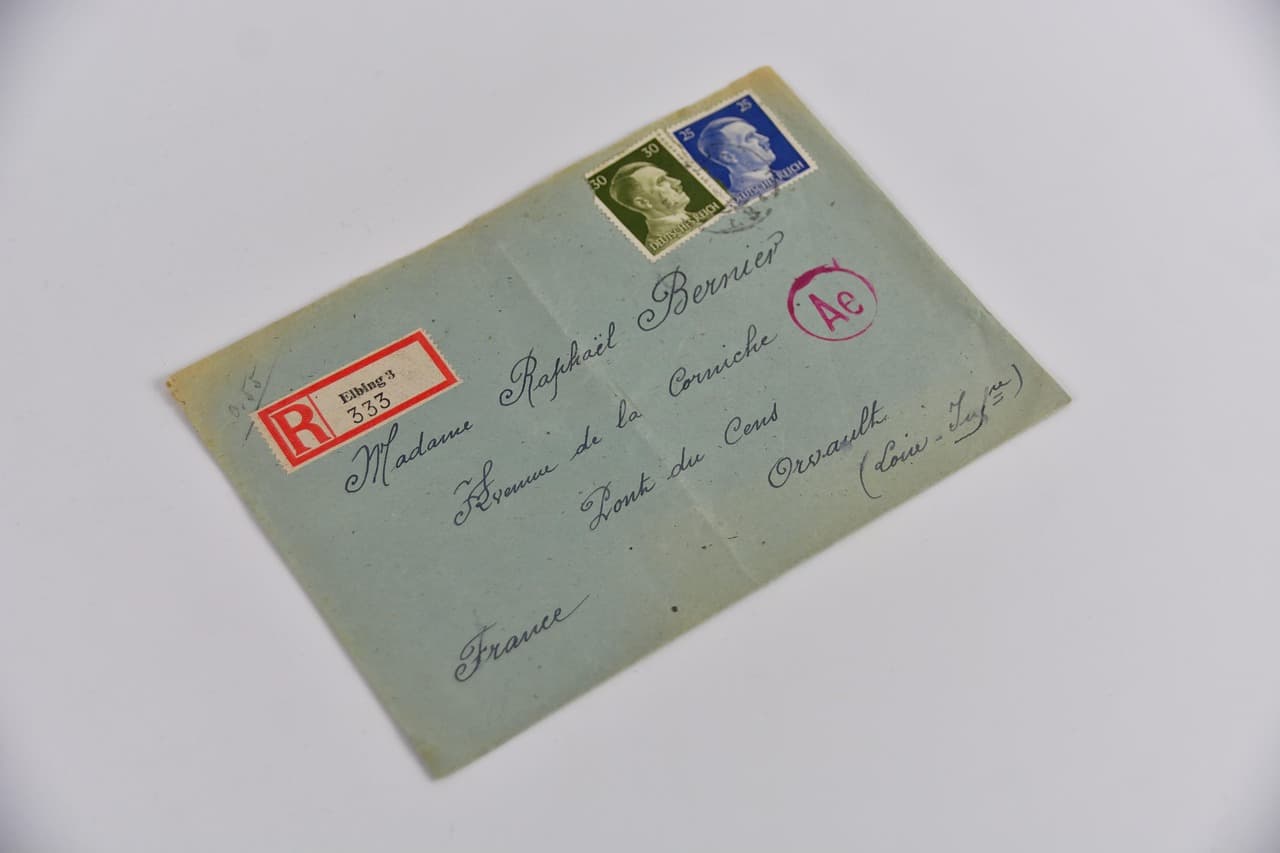 30 30
DEUTSCHES REICH
25 25
DEUTSCHES REICH
0,55
R
Elbing 3
333
Ae
Madame Raphaël Bernier
Avenue de la Corniche
Pont du Cens
Orvault
(Loire-Infre)
France